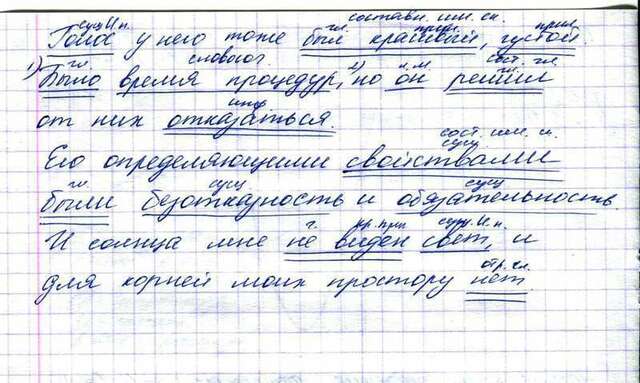 сущ.И.п. составн. им. ск.
гл. прил. прил.
Голос у него тоже был красивый, густой.
гл. словосоч. сост. гл.
1) Было время процедур, 2) но он решил
инф
от них отказаться.
сост. им. ск.
сущ
Его определяющими свойствами
гл. сущ сущ
были безотказность и обязательность.
г. кр. прил сущ. И.п.
И солнца мне не виден свет, и
отр. гл.
для корней моих простору нет.